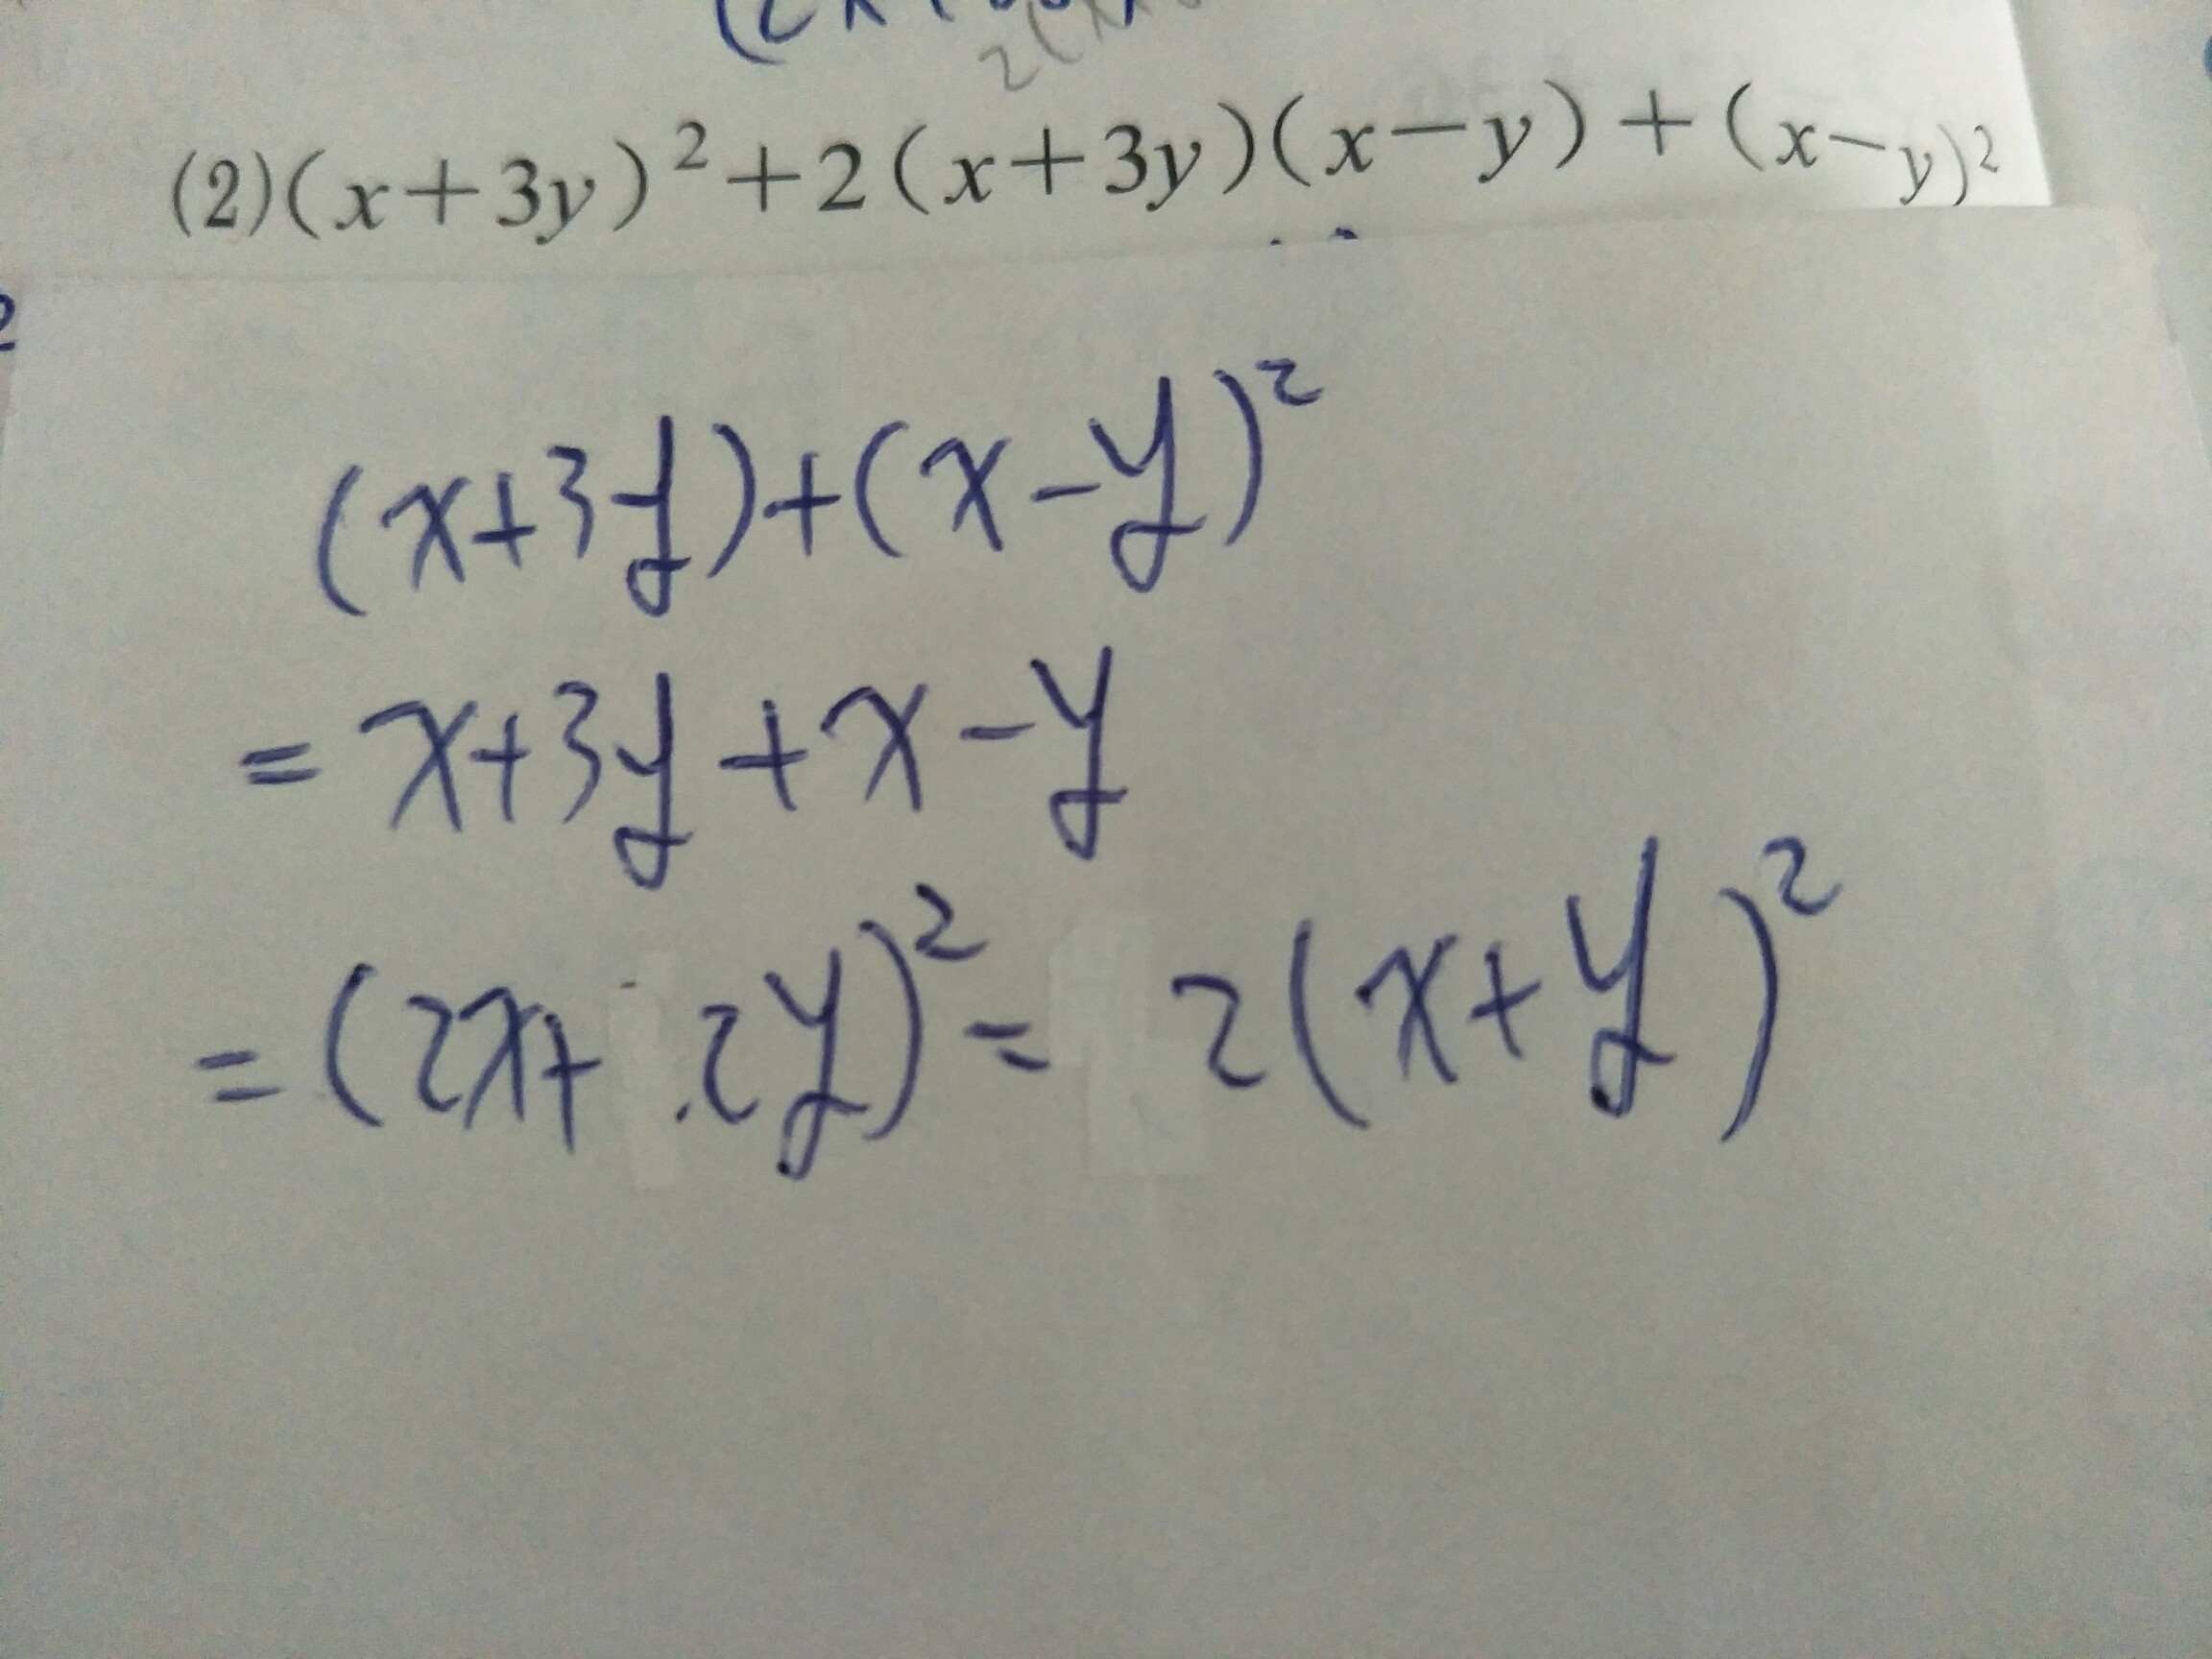 (2)(x+3y)²+2(x+3y)(x-y)+(x-y)²
(x+3y)+(x-y)²
=x+3y+x-y
=(2x+2y)²=2(x+y)²